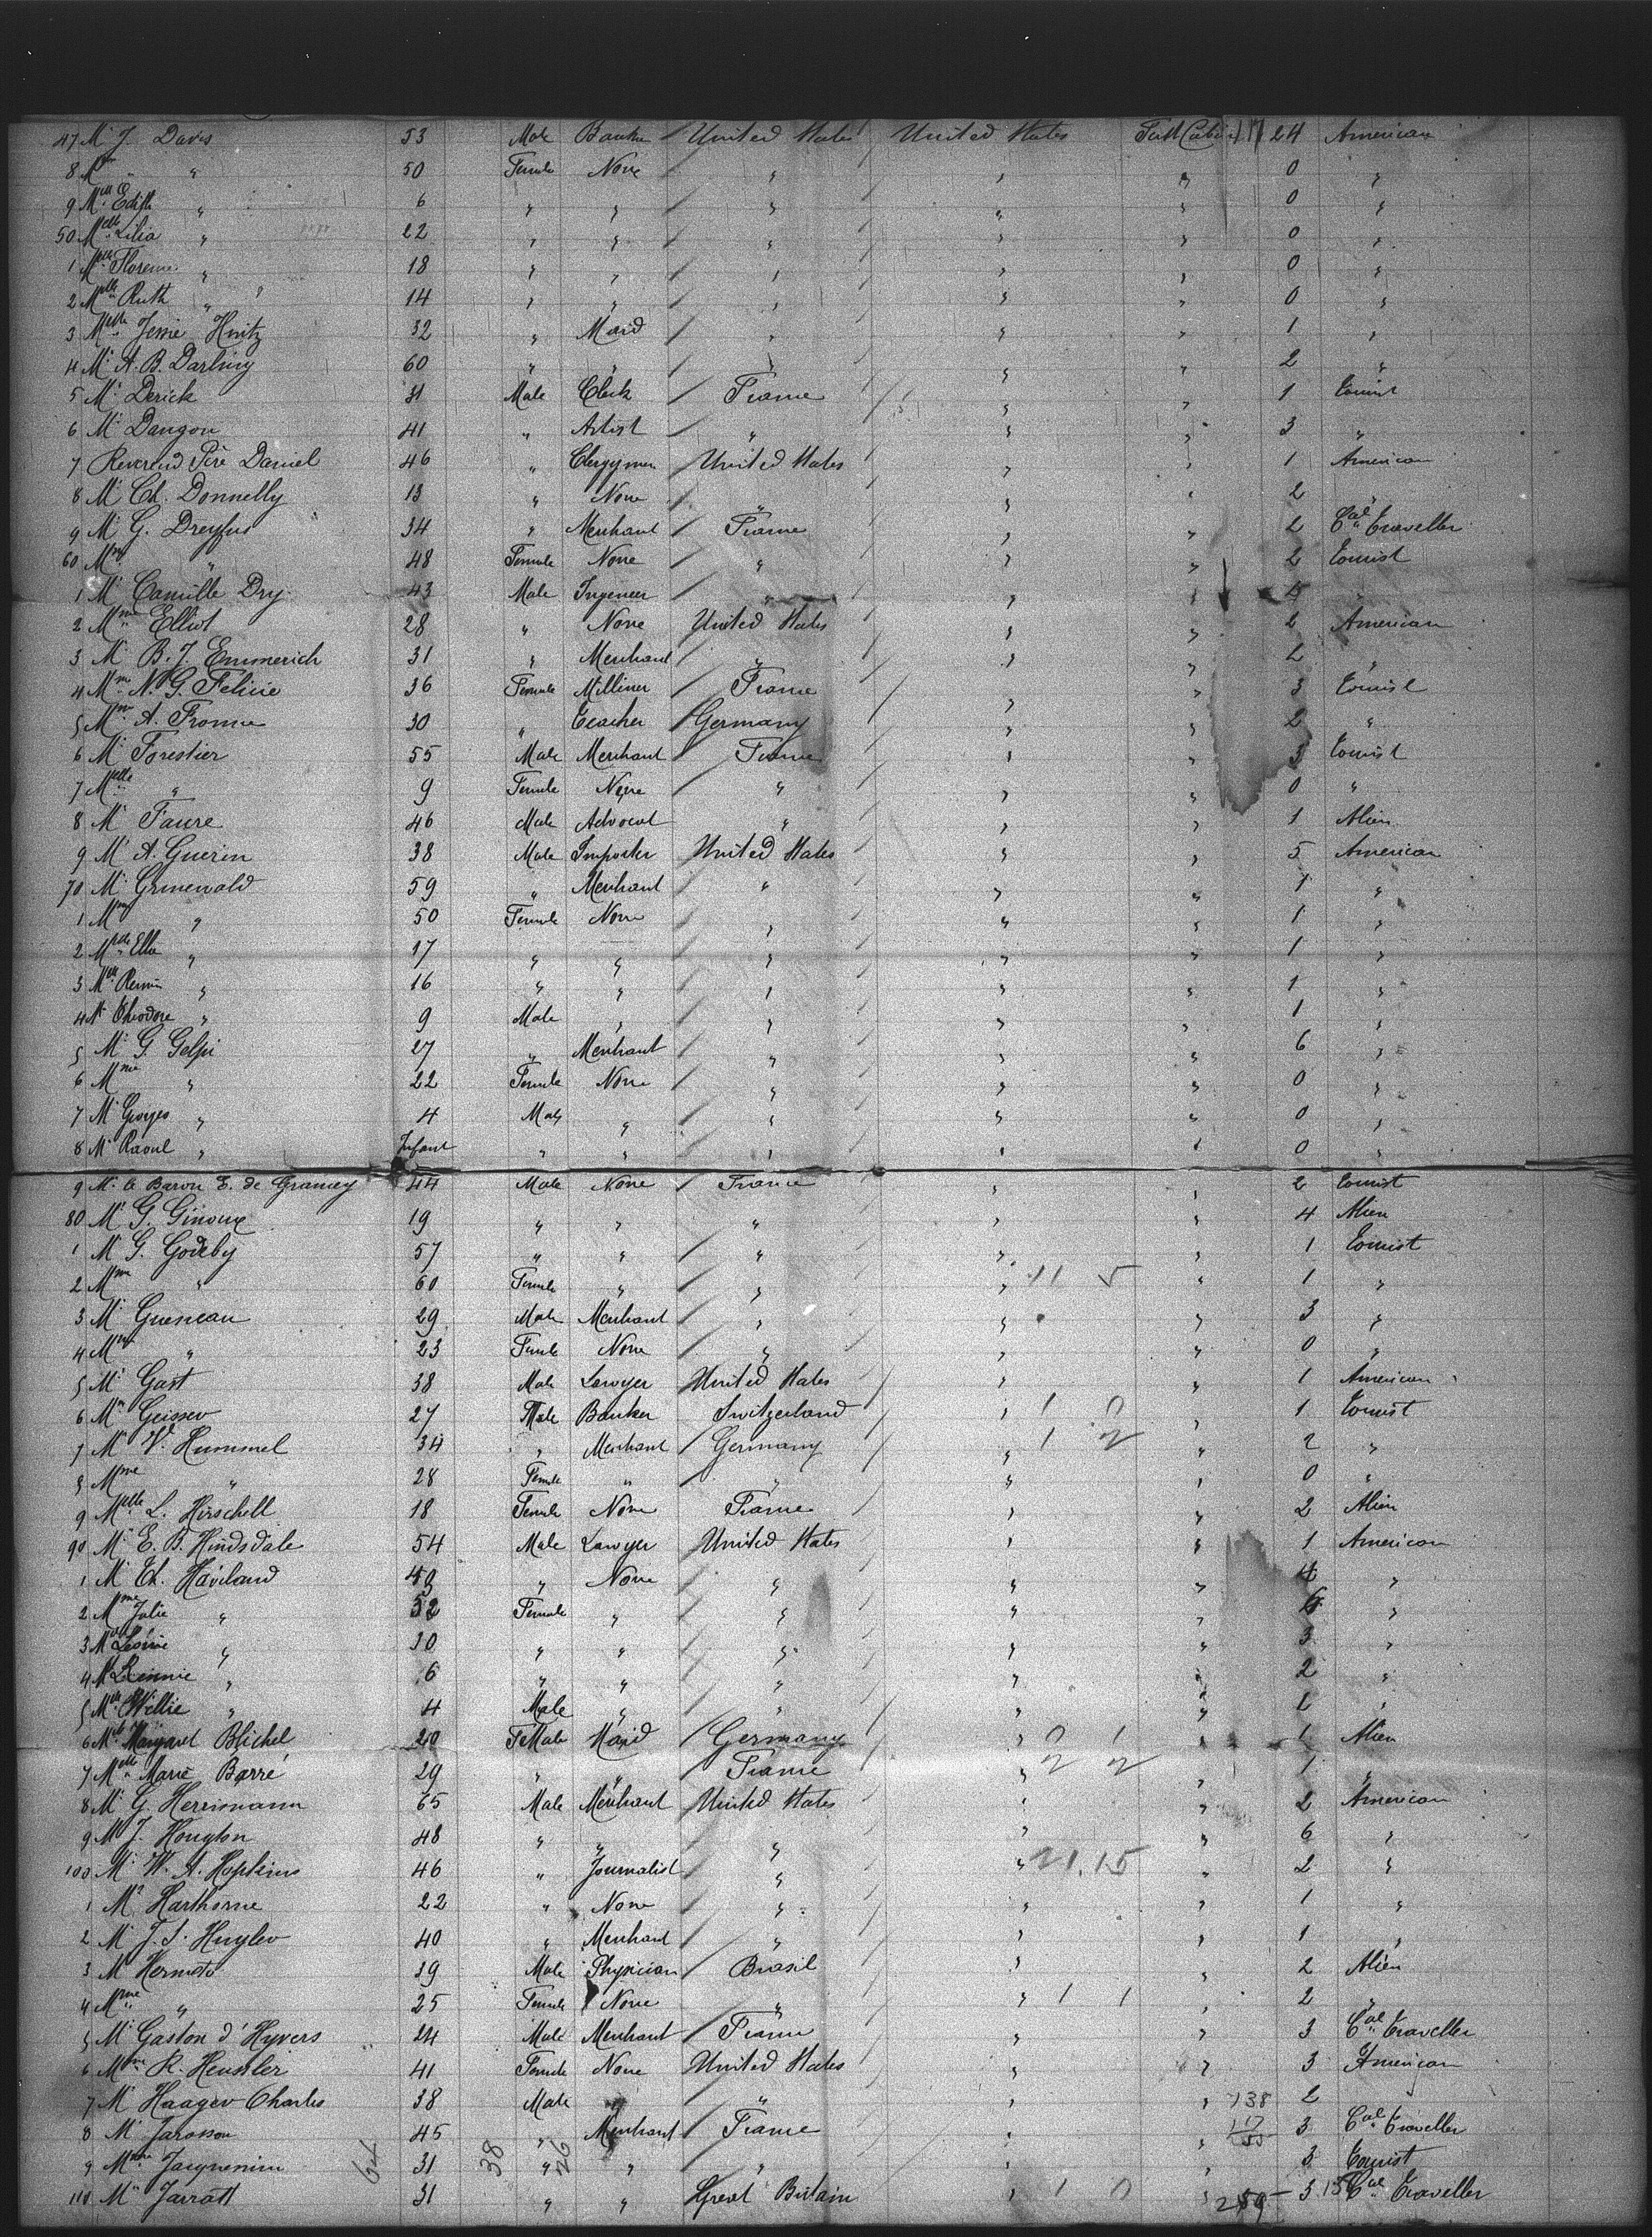 47 Mr J. Davis 53 Male Banker United States United States First Cabin 24 American
8 Mme " 50 Female None " " " 0 "
9 Melle Edith " 6 " " " " " 0 "
50 Melle Lilia " 22 " " " " " 0 "
1 Melle Florence " 18 " " " " " 0 "
2 Melle Ruth " 14 " " " " " 0 "
3 Melle Jenie Hintz 32 " Maid " " " 1 "
4 Mr A. B. Darling 60 " " " " " 2 "
5 Mr Derick 31 Male Clerk France " " 1 Tourist
6 Mr Dangon 41 " Artist " " " 3 "
7 Reverend Père Daniel 46 " Clergymen United States " " 1 American
8 Mr Ch. Donnelly 13 " None " " " 2 "
9 Mr G. Dreyfus 34 " Merchant France " " 2 Cal Traveller
60 Mme " 48 Female None " " " 2 Tourist
1 Mr Camille Dry 43 Male Ingeneer " " " "
2 Mme Elliot 28 " None United States " " 2 American
3 Mr B. J. Emmerich 31 " Merchant " " " 2 "
4 Mme N. G. Felicie 36 Female Milliner France " " 3 Tourist
5 Mme A. Fromm 30 " Teacher Germany " " 2 "
6 Mr Forestier 55 Male Merchant France " " 3 Tourist
7 Melle " 9 Female None " " " 0 "
8 Mr Faure 46 Male Advocat " " " 1 Alien
9 Mr A. Guerin 38 Male Importer United States " " 5 American
70 Mr Grunewald 59 " Merchant " " " 1 "
1 Mme " 50 Female None " " " 1 "
2 Melle Ella " 17 " " " " " 1 "
3 Melle " 16 " " " " " 1 "
4 Mr Théodore " 9 Male " " " " 1 "
5 Mr G. Gelpi 27 " Merchant " " " 6 "
6 Mme " 22 Female None " " " 0 "
7 Mr Georges " 4 Male " " " " 0 "
8 Mr Raoul " Infant " " " " " 0 "
9 Mr le Baron E. de Grancey 44 Male None France " " 2 Tourist
80 Mr G. Ginoux 19 " " " " " 4 Alien
1 Mr G. Godeby 57 " " " " " 1 Tourist
2 Mme " 60 Female " " " 11 5 " 1 "
3 Mr Gueneau 29 Male Merchant " " " 3 "
4 Mme " 23 Female None " " " 0 "
5 Mr Gast 38 Male Lawyer United States " " 1 American
6 Mr Geisser 27 Male Banker Switzerland " 1 0 " 1 Tourist
7 Mr V. Hummel 34 " Merchant Germany " 1 2 " 2 "
8 Mme " 28 Female " " " " 0 "
9 Melle L. Hirschell 18 Female None France " " 2 Alien
90 Mr E. B. Hindsdale 54 Male Lawyer United States " " 1 American
1 Mr Ch. Haviland " None " " " 4 "
2 Mme Julie " 52 Female " " " " 6 "
3 Mlle Léonie " 10 " " " " " 3 "
4 " 6 " " " " " 2 "
5 Willie " 4 Male " " " " "
6 Melle Margaret Blichel 20 FeMale Maid Germany " 0 1 " 1 Alien
7 Melle Marie Barré 29 " " France " 2 2 " 1 "
8 Mr G. Herrmann 65 Male Merchant United States " " 2 American
9 Mr J. Hougton 48 " " " " " 6 "
100 Mr W. A. Hopkins 46 " Journalist " " 21.15 " 2 "
1 Mr Harthorne 22 " None " " " 1 "
2 Mr J. S. Huyler 40 " Merchant " " " 1 "
3 Mr Hermeto 29 Male Physician Brasil " " 2 Alien
4 Mme " 25 Female None " " 1 1 " 2 "
5 Mr Gaston d'Hyvers 24 Male Merchant France " " 3 Cal Traveller
6 Mme R. Heussler 41 Female None United States " " 3 American
7 Mr Haager Charles 38 Male " " " " 138 2
8 Mr Jarosson 45 " Merchant France " " 117 3 Cal Traveller
9 Mr Jacquenin 31 " " " " 3 Tourist
110 Mr Jarratt 31 " " Great Britain " 1 0 " 259 3 Cal Traveller
64 38 26